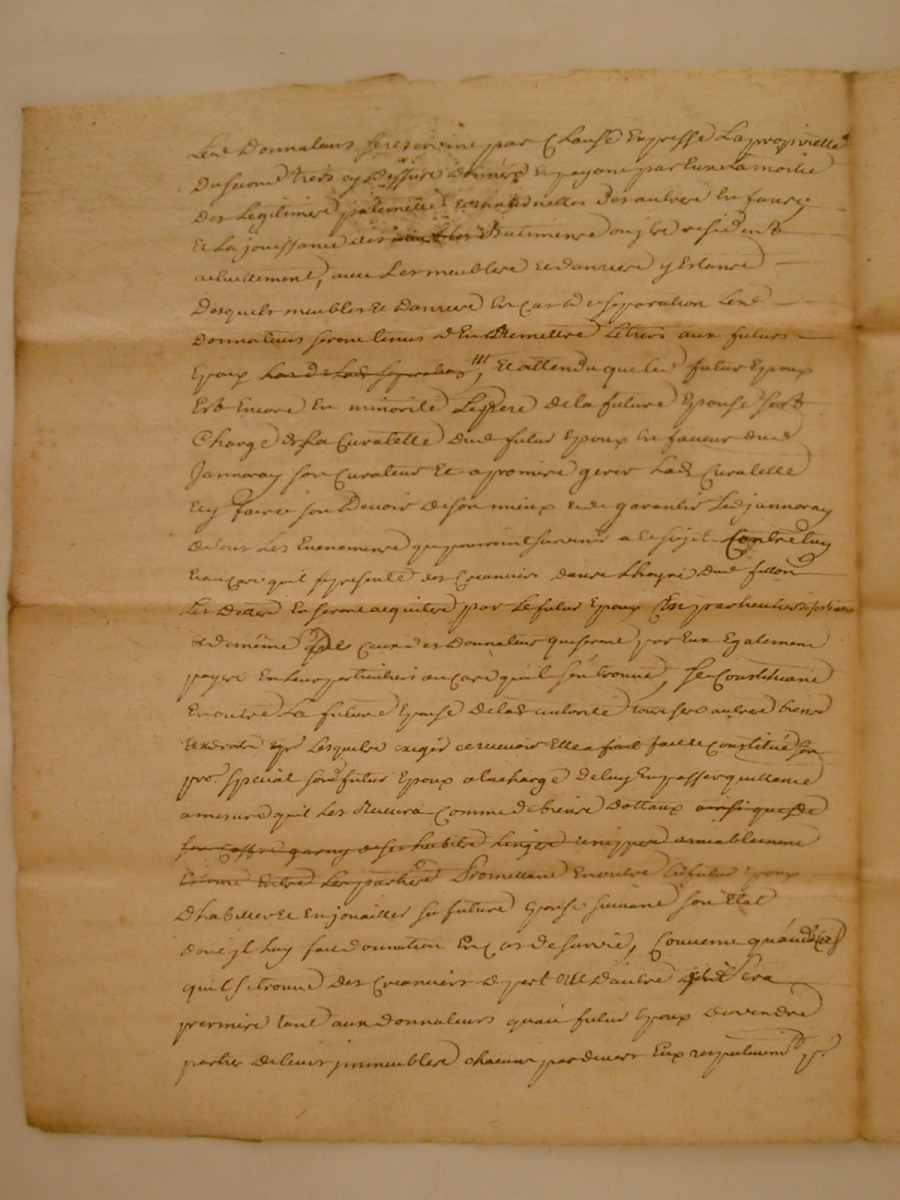 Lesd Donnateurs se reservine par Clause Expresse La proprietté
Du second Tiers cy Dessus donnée en payane par Eux La moitié
Des Legitimes paternelle et maternelles Des autres Enfans,
Et La jouissance des Batimens ou ils resident
actuellement, avec Les meubles et danrées y Estans
Desquels meubles Et Danrées En Cas de Separation Lesd
donnateurs serons tenus d'En Remettre Le tiers aux futurs
Epoux, Et attendu que led futur Epoux
Est Encore En minorité Le pere de la future Epouse s'est
Chargé de La Curatelle dud futur Epoux En faveur dud
Jannoray son Curateur Et a promis gerer Lade Curatelle
Et y faire son Devoir de son mieux et de garentir Led jannoray
de tous Les Evenemens qui pouroint survenir a ce sujet Contre luy
Et au Cas qu'il se presente des Creanciers dans L'hoyrie dud
Les Dettes En serons acquitées par Le futur Epoux En particulier
et de même Ceux des Donnateurs qui seront par Eux Egalement
payés En Leur particuliers au Cas qu'il s'en trouve, Se Constituant
En outre La future Epouse de lad autorité tous ses autres biens
Et droits pr Lesquels exiger et recevoir Elle a fait Et Constitué son
pro. special sond futur Epoux a la charge de luy En passer quittance
a mesure qu'il Les Recevra Comme de biens Dottaux ainsi que de
son Coffre garny de ses habits Linges et nippes amiablement
Estimé Entre Les parties Promettant En outre led futur Epoux
D'habiller Et Enjouailler sa future Epouse suivant son Etat
dont il luy fait donnation En Cas de survie, Convenu qu'au Cas
qu'il se trouve Des Creanciers de part Et D'autre il Sera
permis tant aux donnateurs qu'au futur Epoux de vendre
partie de leurs immeubles chacun par devers Eux respectivemt pr